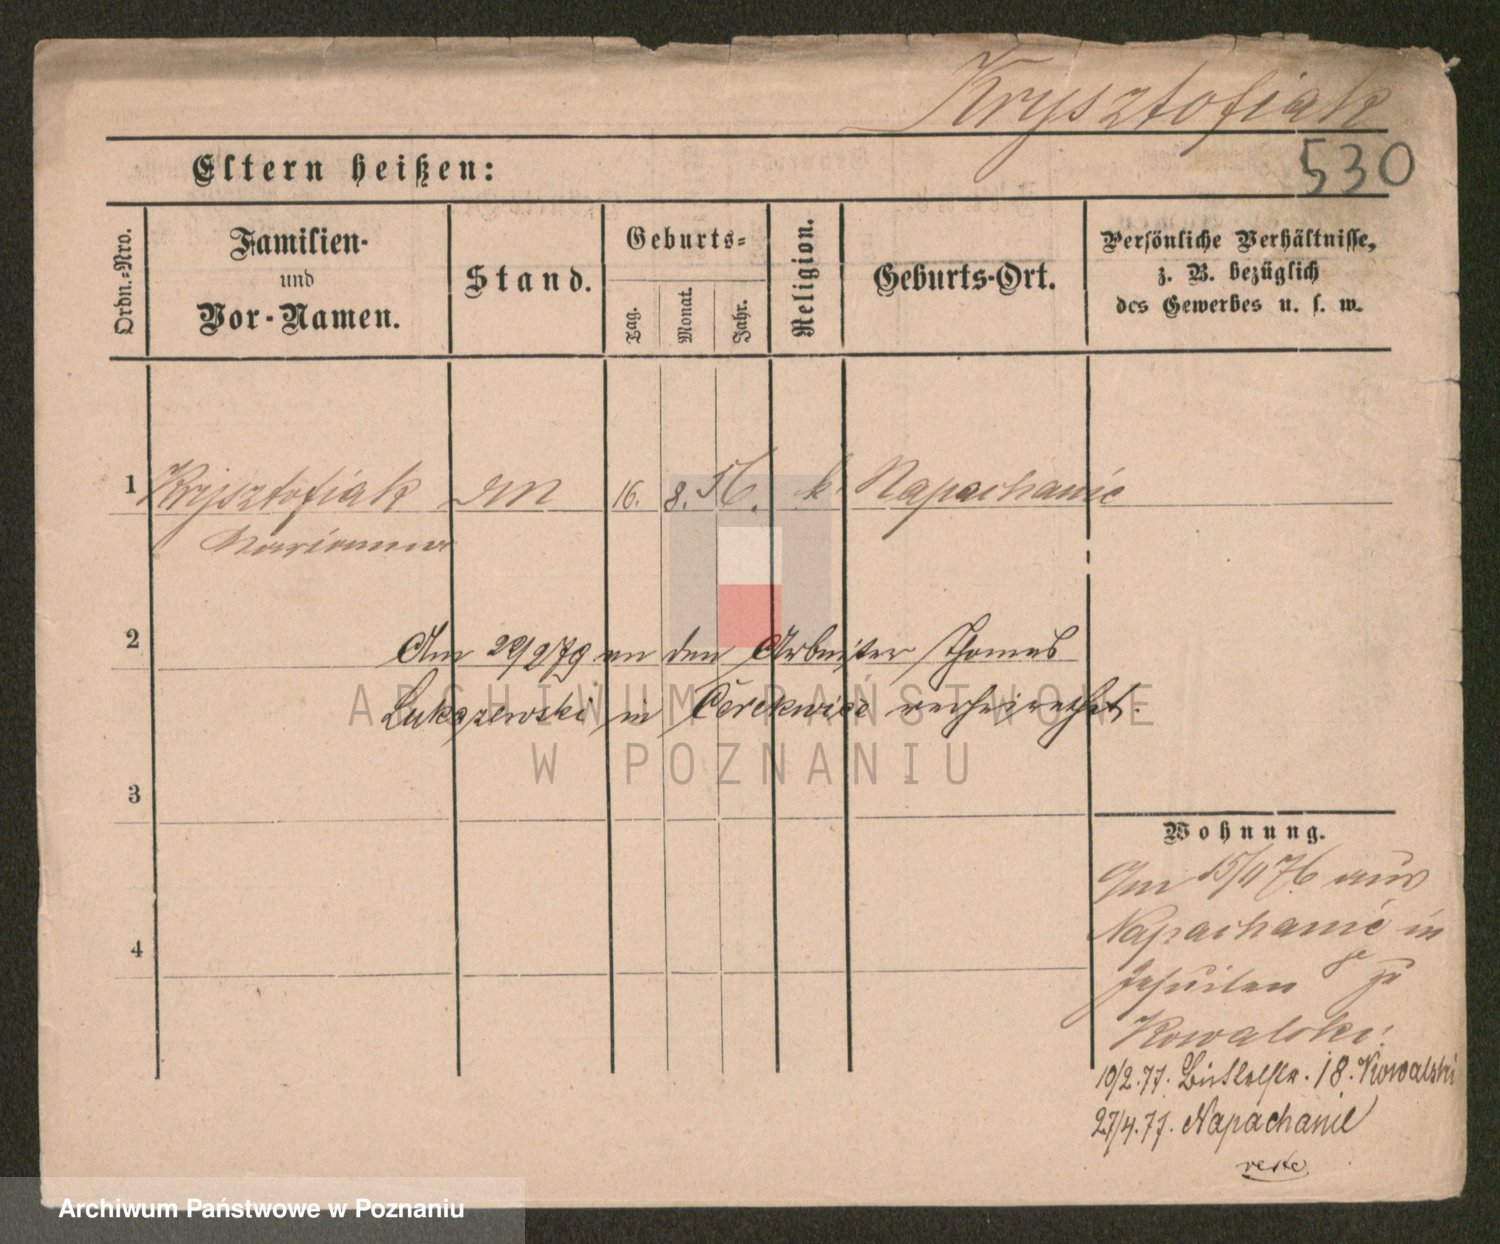 Krysztofiak
530
Eltern heißen:
Ordn.-Nro.
Familien-
und
Vor-Namen.
Stand.
Geburts-
Tag.
Monat.
Jahr.
Religion.
Geburts-Ort.
Persönliche Verhältnisse,
z. B. bezüglich
des Gewerbes u. s. w.
1 Krysztofiak 16. 8. 56. k. Napachanie
Marianna
2 Am 22/2 79 an den Arbeiter Thomas
Lukaszewski in Cerekwice verheirathet.
ARCHIWUM PAŃSTWOWE
W POZNANIU
3
4
Wohnung.
Am 15/1 76 aus
Napachanie in
Jesuiten zu
Kowalski.
10/2.77. 18. Kowalski
27/4.77. Napachanie
Archiwum Państwowe w Poznaniu